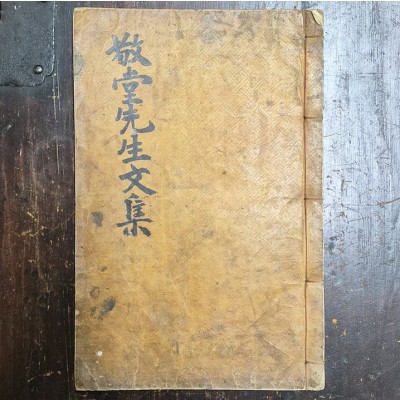 敬堂先生文集